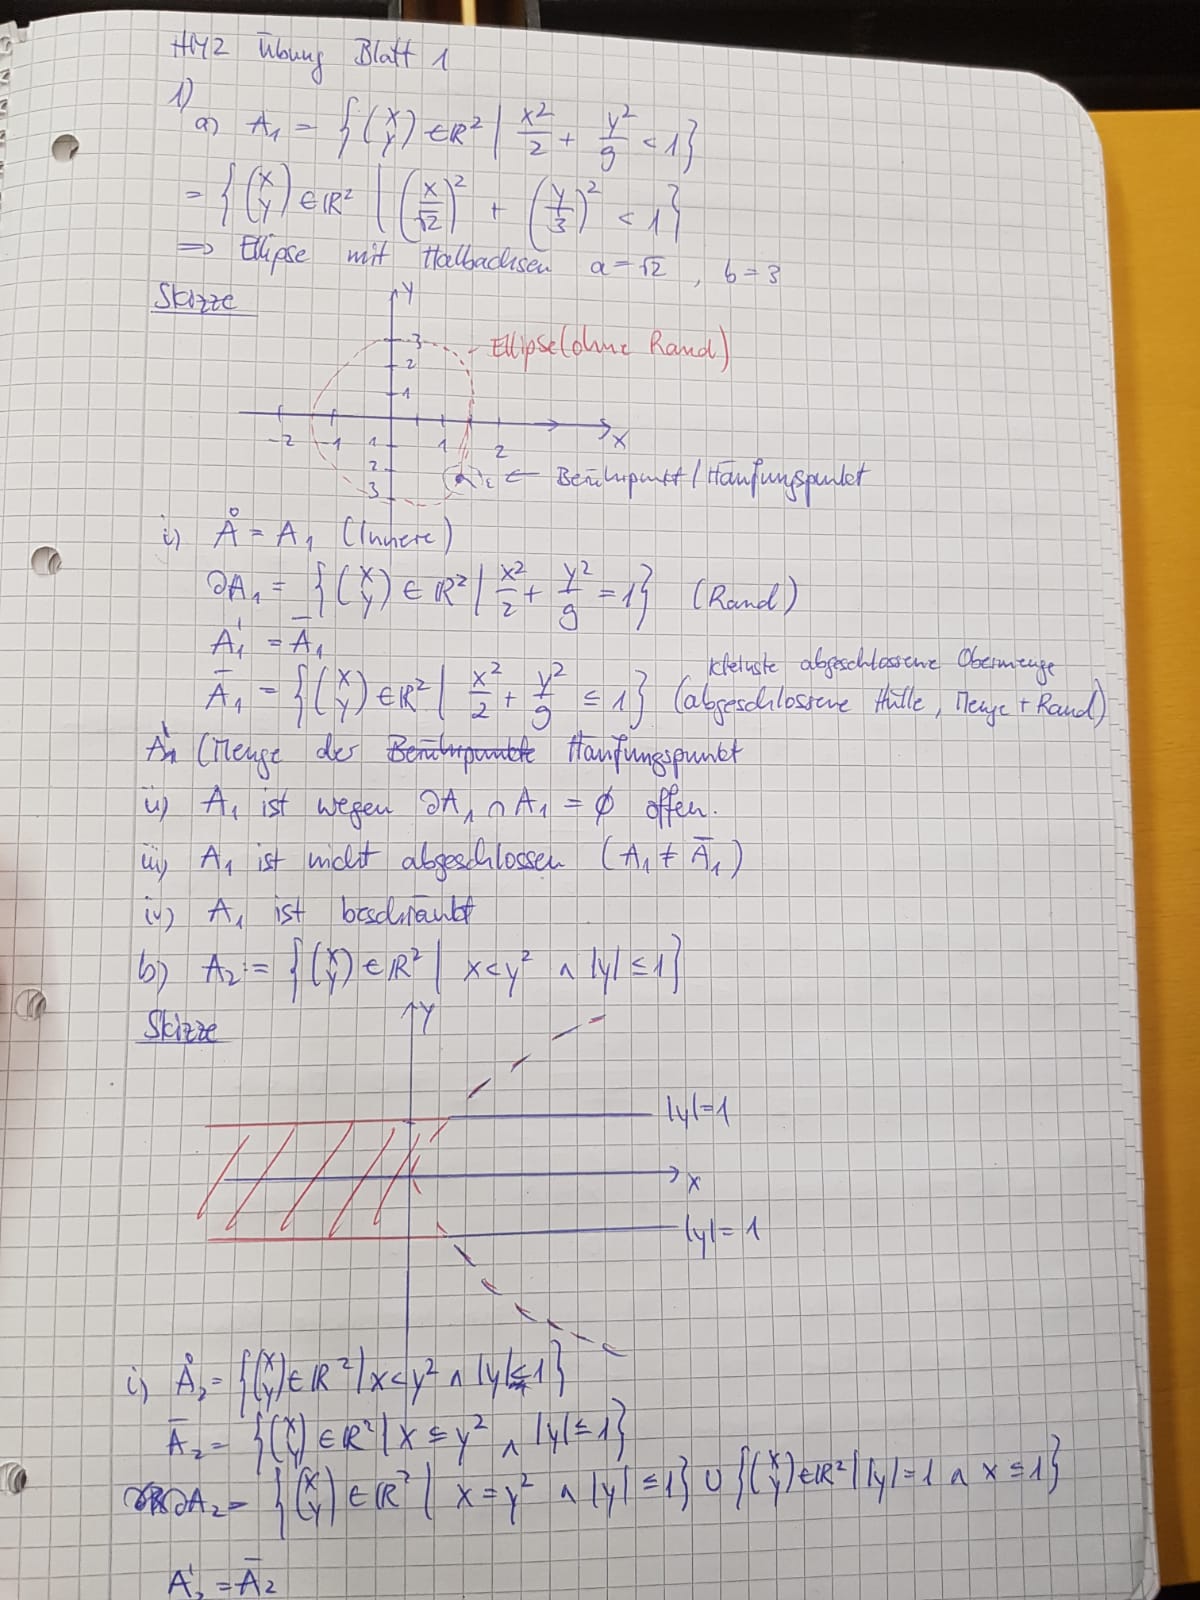 HM2 Übung Blatt 1
1)
a) A₁ = {(x y) ∈ ℝ² | x²/2 + y²/9 < 1}
= {(x y) ∈ ℝ² | (x/√2)² + (y/3)² < 1}
⇒ Ellipse mit Halbachsen a = √2 , b = 3
Skizze
y
3
Ellipse (ohne Rand)
2
1
-2 -1 1 1 2 x
2
3
← Berührpunkt / Häufungspunkt
i) Å = A₁ (Innere)
∂A₁ = {(x y) ∈ ℝ² | x²/2 + y²/9 = 1} (Rand)
A₁' = Ā₁
kleinste abgeschlossene Obermenge
Ā₁ = {(x y) ∈ ℝ² | x²/2 + y²/9 ≤ 1} (abgeschlossene Hülle, Menge + Rand)
A₁' (Menge der Berührpunkte Häufungspunkt
ii) A₁ ist wegen ∂A₁ ∩ A₁ = ∅ offen.
iii) A₁ ist nicht abgeschlossen (A₁ ≠ Ā₁)
iv) A₁ ist beschränkt
b) A₂ := {(x y) ∈ ℝ² | x < y² ∧ |y| ≤ 1}
Skizze
y
|y| = 1
x
|y| = 1
i) Å₂ = {(x y) ∈ ℝ² | x < y² ∧ |y| < 1}
Ā₂ = {(x y) ∈ ℝ² | x ≤ y² ∧ |y| ≤ 1}
∂A₂ = {(x y) ∈ ℝ² | x = y² ∧ |y| ≤ 1} ∪ {(x y) ∈ ℝ² | |y| = 1 ∧ x ≤ 1}
A₂' = Ā₂